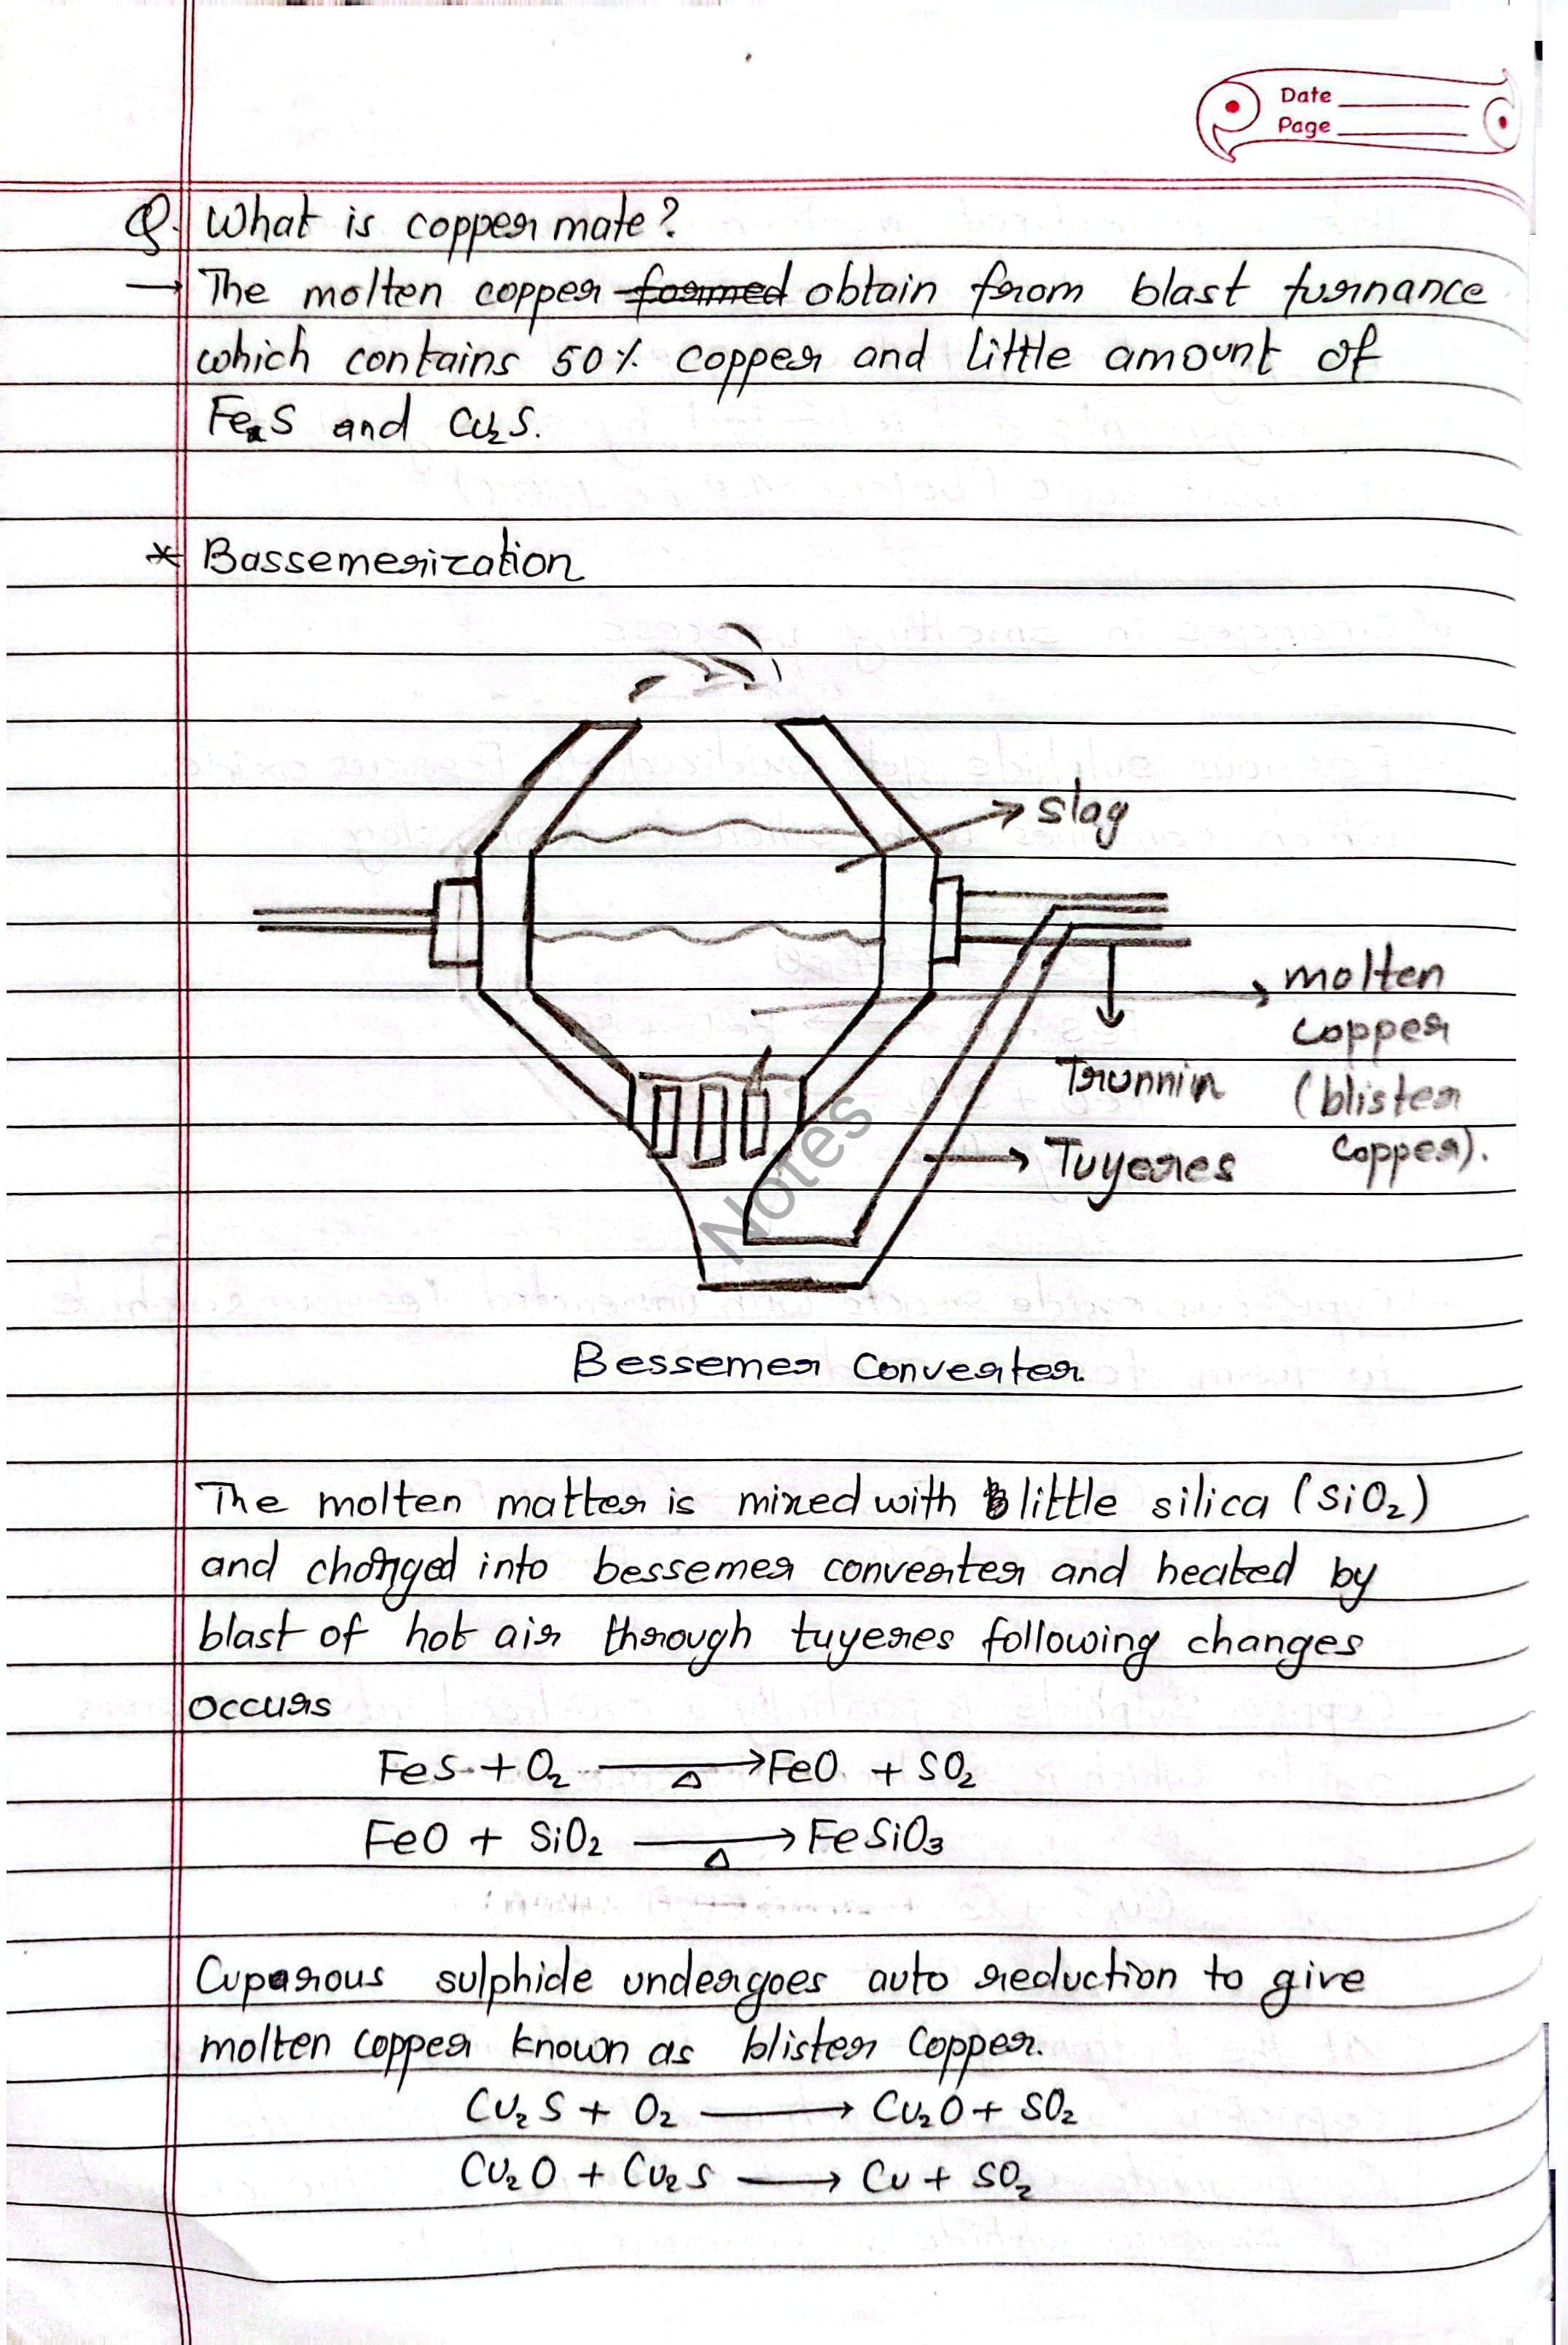 Date
Page
Q. What is copper mate?
→ The molten copper formed obtain from blast furnance
which contains 50% copper and little amount of
FeS and Cu₂S.
* Bassemerization
slag
molten
copper
(blister
copper).
Trunnin
Tuyeres
Notes
Bessemer Converter.
The molten matter is mixed with little silica (SiO₂)
and charged into bessemer converter and heated by
blast of hot air through tuyeres following changes
occurs
FeS + O₂ ⟶ Δ FeO + SO₂
FeO + SiO₂ ⟶ Δ FeSiO₃
Cuparous sulphide undergoes auto reduction to give
molten copper known as blister copper.
Cu₂S + O₂ ⟶ Cu₂O + SO₂
Cu₂O + Cu₂S ⟶ Cu + SO₂